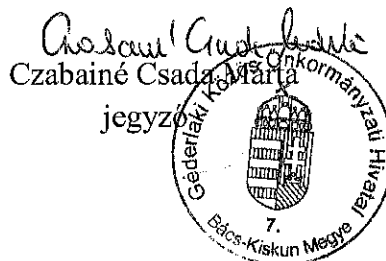 Czabainé Csada Márta
jegyző
Géderlaki Közös Önkormányzati Hivatal
7.
Bács-Kiskun Megye